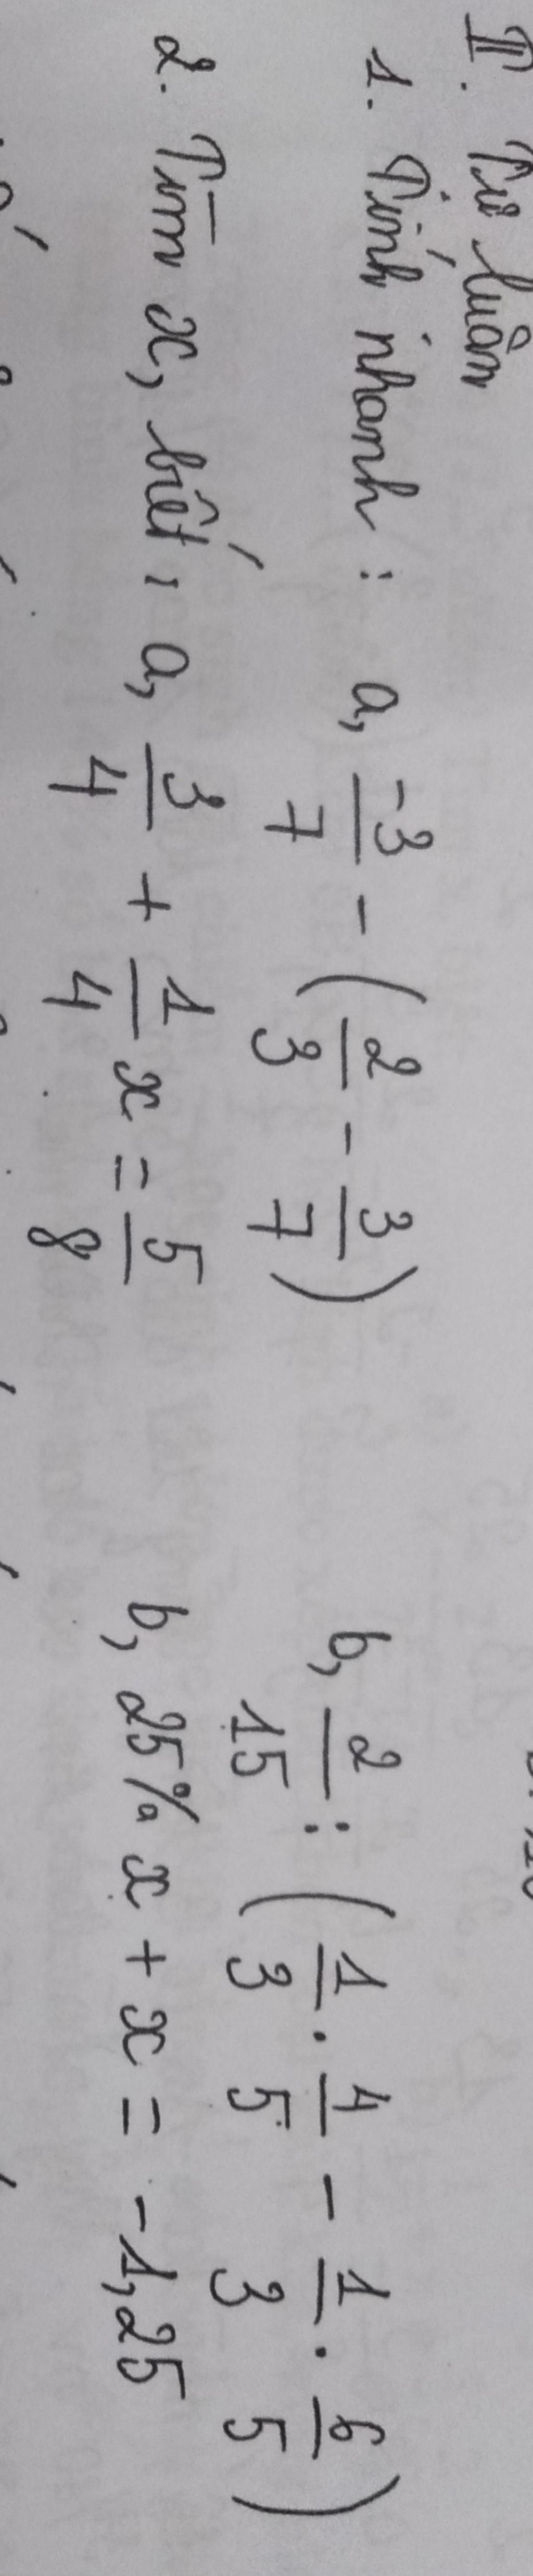 II. Tự luận
1. Tính nhanh : a, -3/7 - (2/3 - 3/7) b, 2/15 : (1/3 . 4/5 - 1/3 . 6/5)
2. Tìm x, biết : a, 3/4 + 1/4 x = 5/8 b, 25% x + x = -1,25